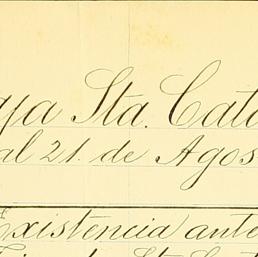 ya Sta. Cata
al 21. de Agos
Existencia ante